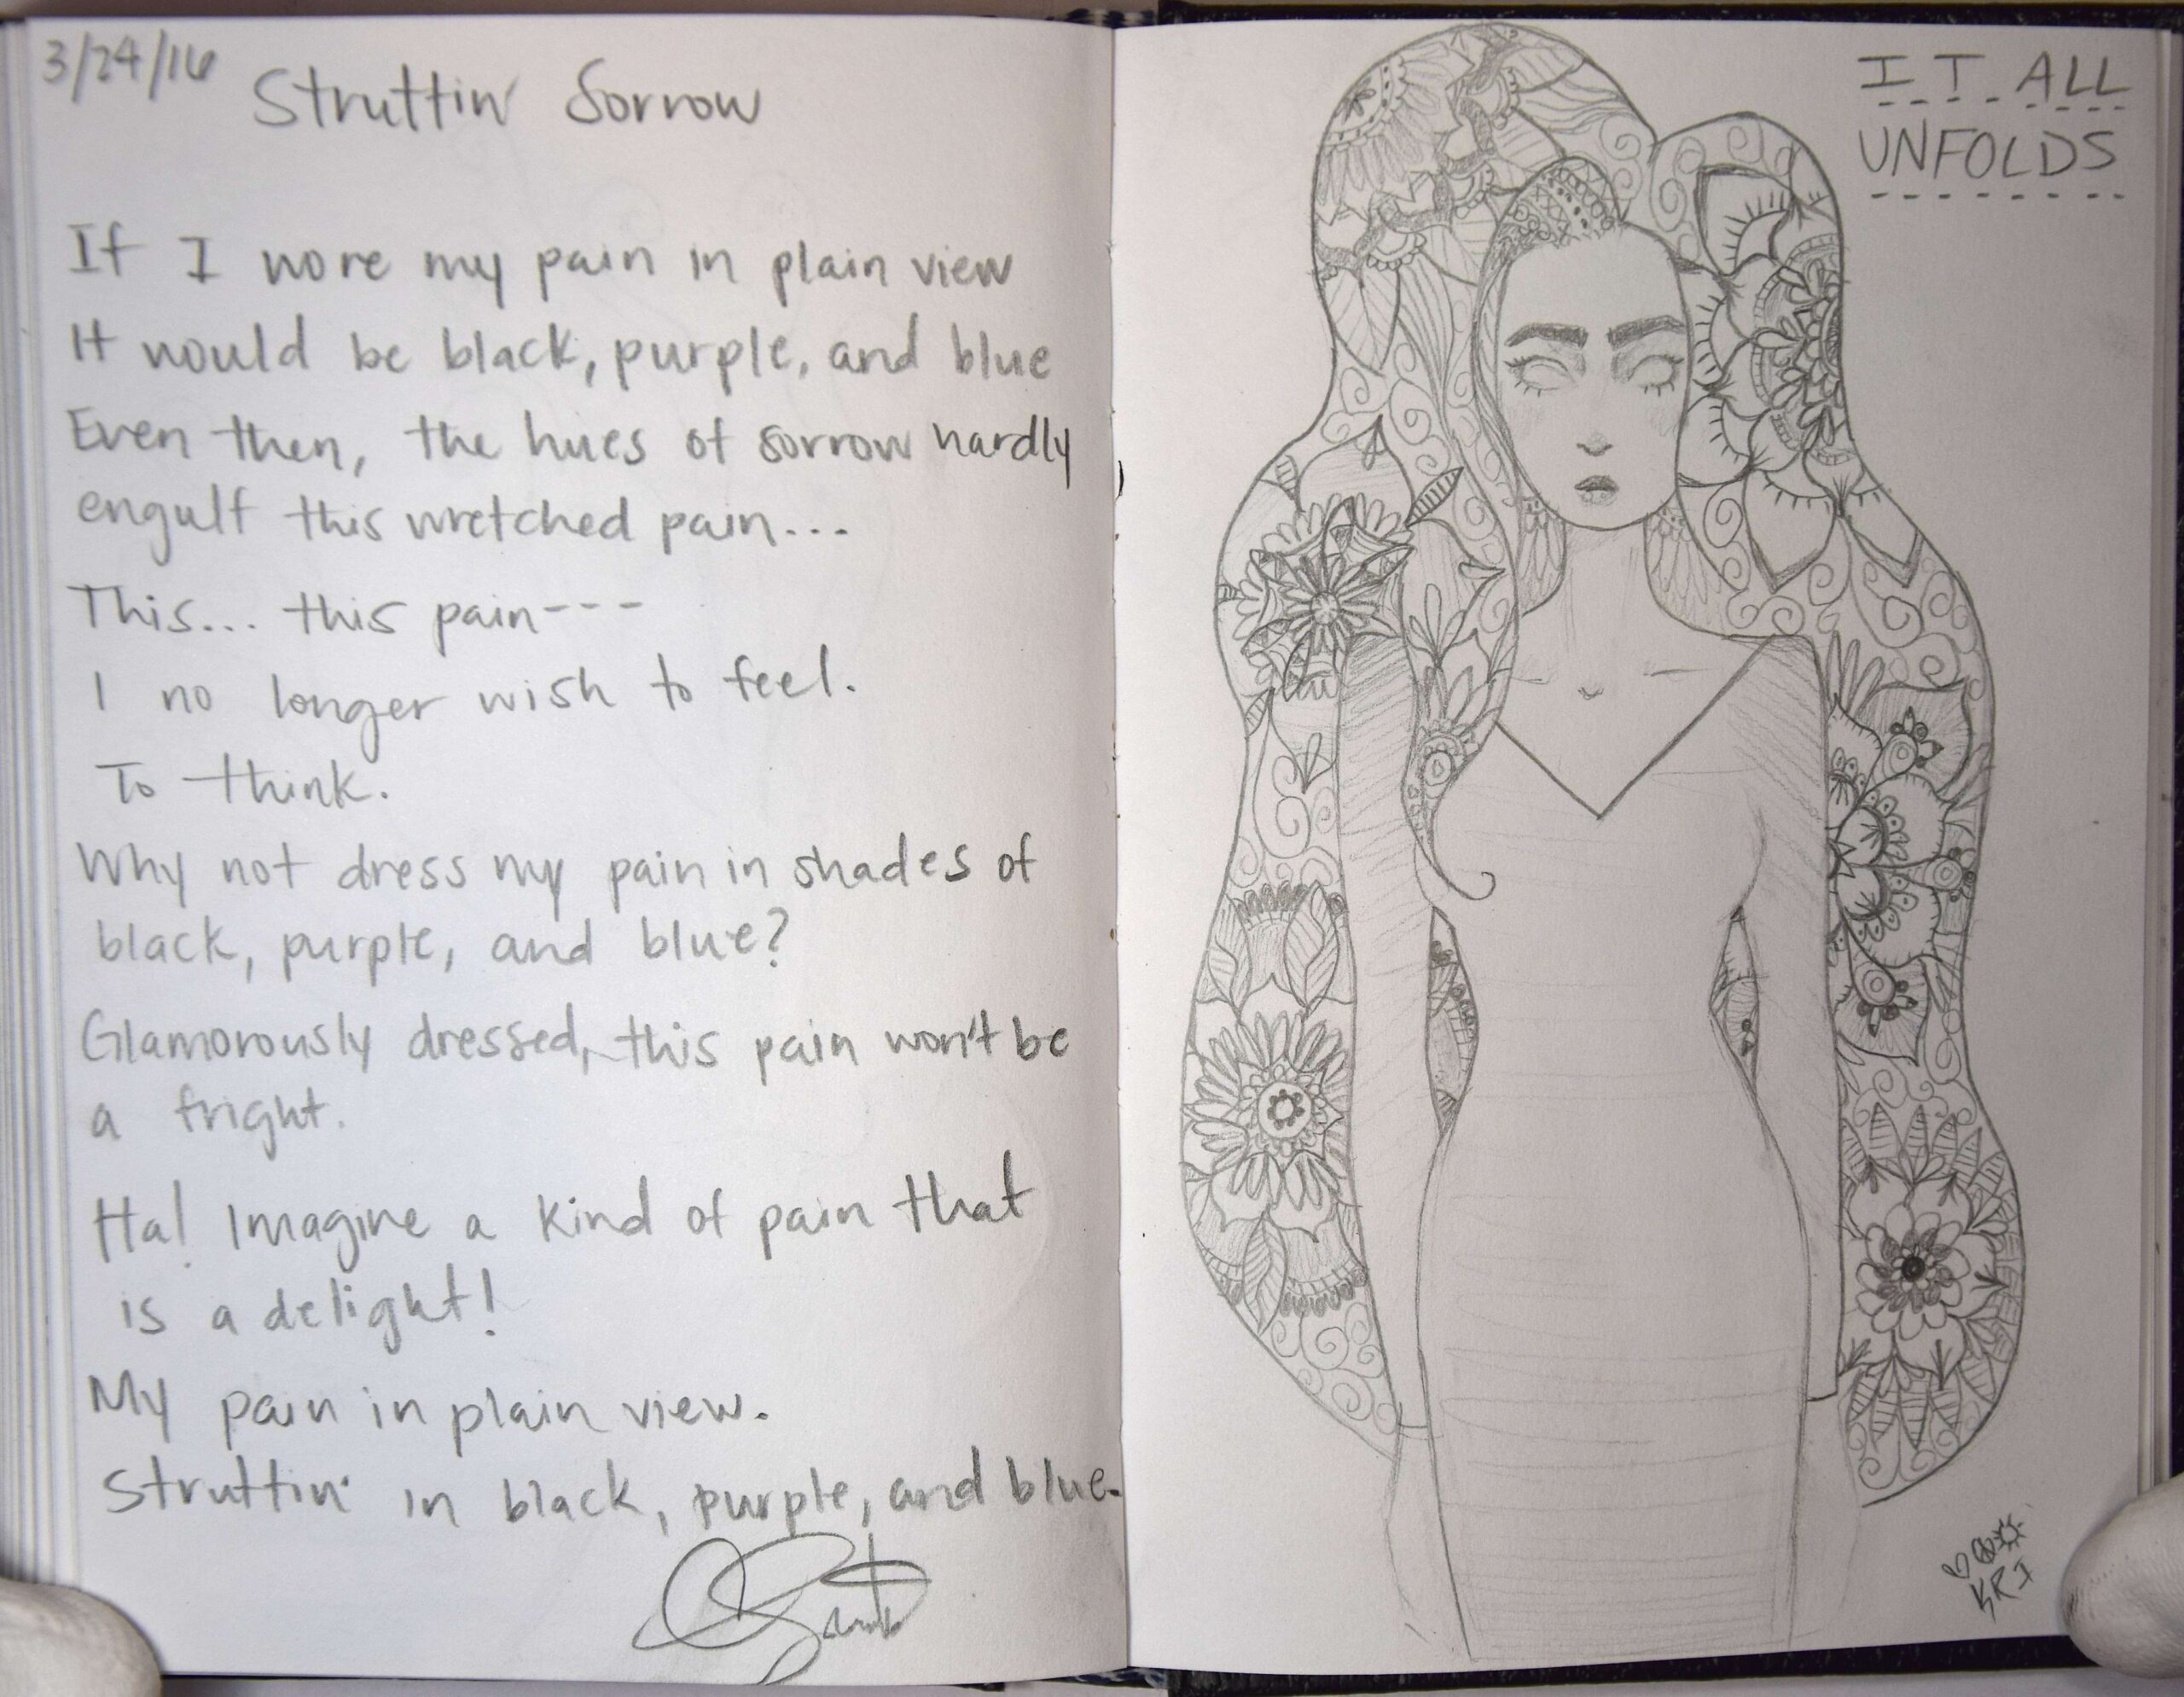 3/24/16
Struttin' Sorrow
If I wore my pain in plain view
It would be black, purple, and blue
Even then, the hues of sorrow hardly
engulf this wretched pain...
This... this pain---
I no longer wish to feel.
To think.
Why not dress my pain in shades of
black, purple, and blue?
Glamorously dressed, this pain won't be
a fright.
Ha! Imagine a kind of pain that
is a delight!
My pain in plain view.
Struttin' in black, purple, and blue.
IT ALL
UNFOLDS
KRI